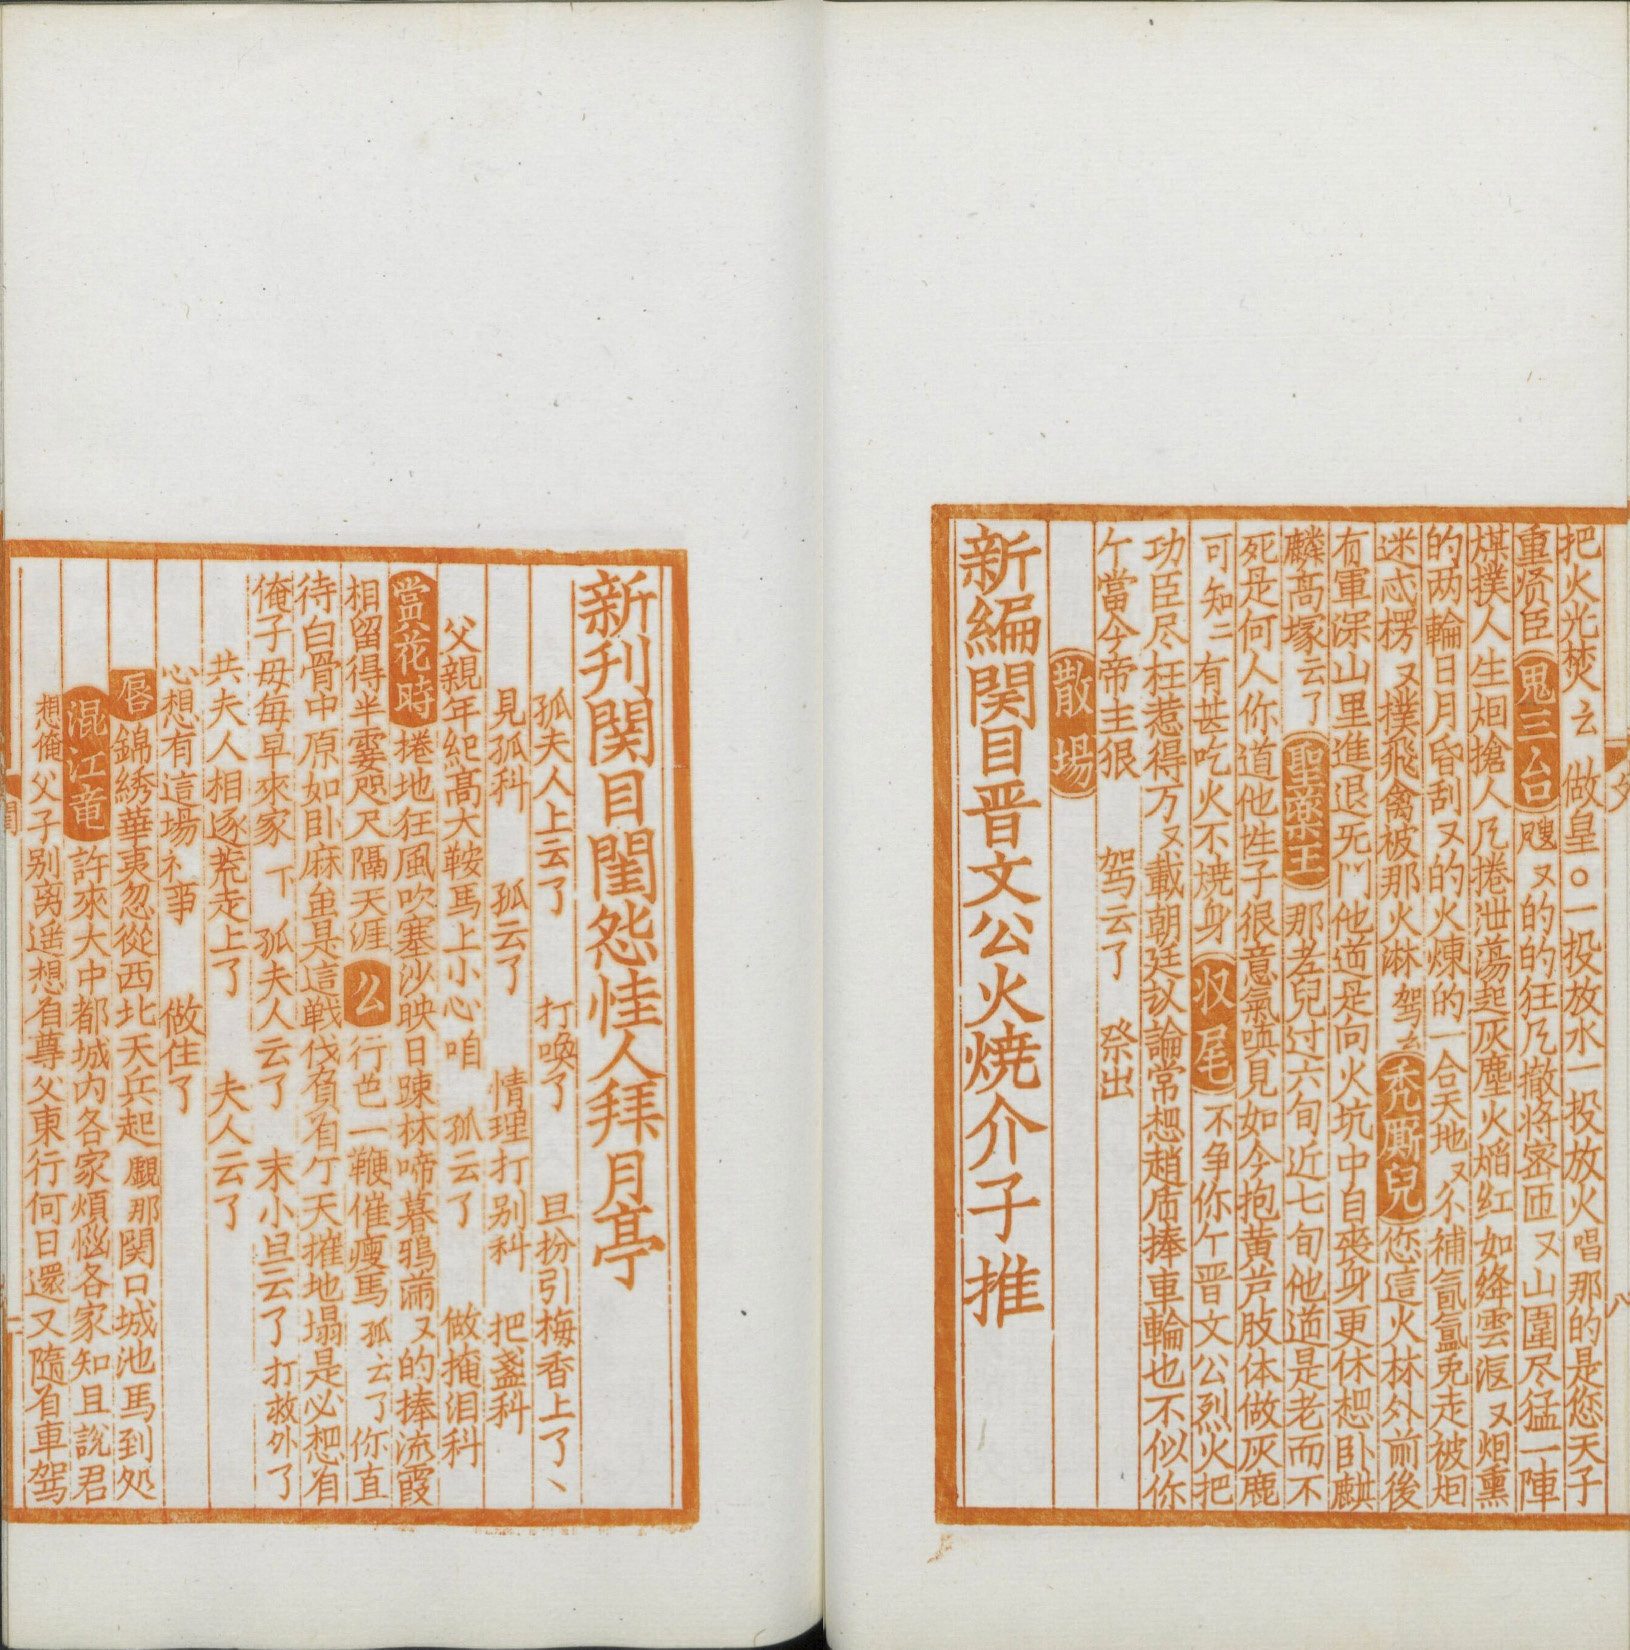 把火光焚云 做皇○一投放水一投放火唱那的是您天子
重贤臣 鬼三台 飕又的的狂凡撤将密匝又山圍尽猛一陣
煤撲人生烟搶人凡捲泄蕩起灰塵火焰红如絳雲滚又烟熏
的两輪日月昏刮又的火煉的一合天地又不補氤氲兎走被烟
迷忒楞又撲飛禽被那火淋 驾云 秃厮兒 您這火林外前後
有軍深山里進退无門他道是向火坑中自丧身更休想卧麒
麟髙塚云了 聖藥王 那老兒过六旬近七旬他道是老而不
死是何人你道他性子很意氣嗔見如今抱黄芦肢体做灰鹿
可知〻有甚吃火不焼身 収尾 不争你亇晋文公烈火把
功臣尽枉惹得万又載朝廷议論常想趙盾捧車輪也不似你
亇當今帝主狠 驾云了 祭出
散場
新編関目晋文公火焼介子推
新刋関目閨怨佳人拜月亭
孤夫人上云了 打喚了 旦扮引梅香上了、
見孤科 孤云了 情理打别科 把盞科
父親年纪髙大鞍馬上小心咱 孤云了 做掩泪科
當花時 捲地狂風吹塞沙映日踈林啼暮鴉滿又的捧流霞
相留得半霎咫尺隔天涯 幺 行色一鞭催瘦馬 孤云了 你直
待白骨中原如卧麻虽是這戦伐負着亇天摧地塌是必想着
俺子母每早來家 下 孤夫人云了 末小旦云了 打救外了
共夫人相逐荒走上了 夫人云了
心想有這場礻事 做住了
唇 錦綉華夷忽從西北天兵起覷那関口城池馬到処
混江竜 許來大中都城内各家煩惱各家知且説君
想俺父子别离遥想着尊父東行何日還又隨着車驾